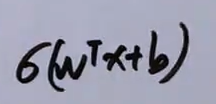 σ(wᵀx+b)